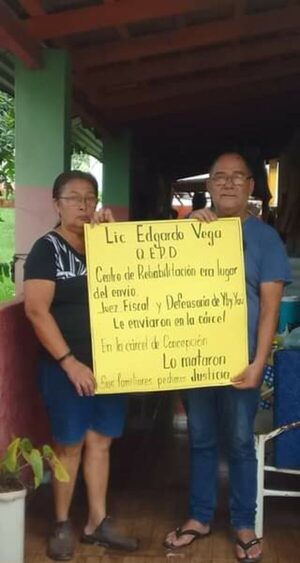 Lic Edgardo Vega
Q.E.P.D
Centro de Rehabilitación era lugar
del envío
Juez Fiscal y Defensoria de Yby Yaú
Le enviaron en la cárcel
En la cárcel de Concepción
Lo mataron
Sus familiares pedimos Justicia